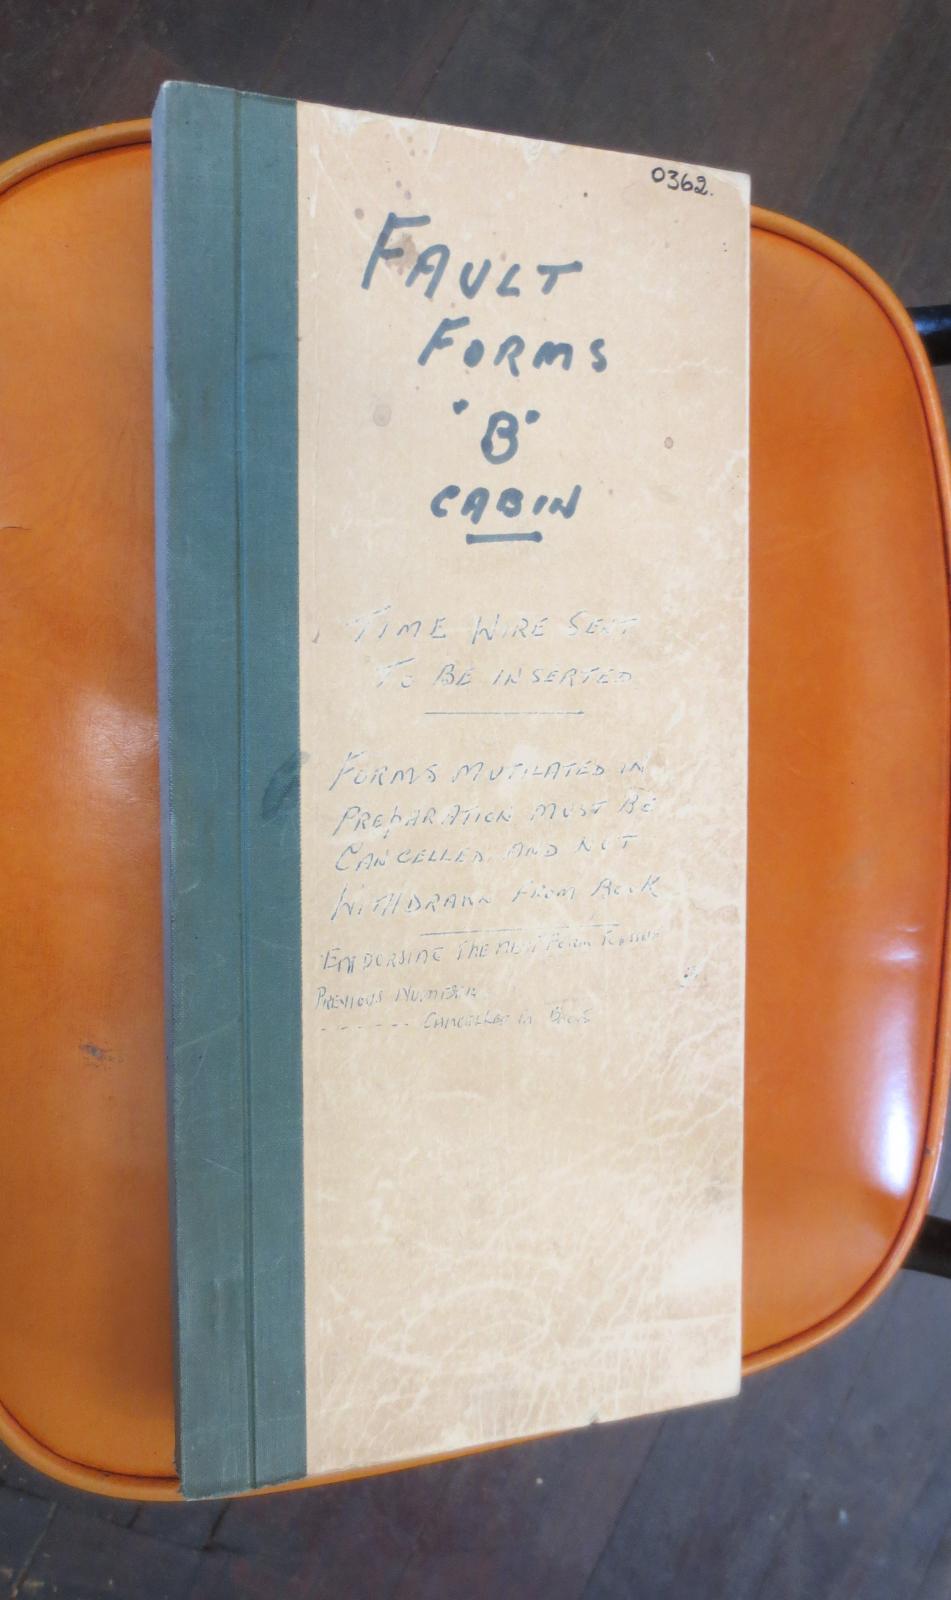 0362.
FAULT
FORMS
"B"
CABIN
TIME WIRE SENT
TO BE INSERTED
FORMS MUTILATED IN
PREPARATION MUST BE
CANCELLED AND NOT
WITHDRAWN FROM BOOK
ENDORSING THE NEXT FORM TO ISSUE
PREVIOUS NUMBER
- - - - - - - CANCELLED IN